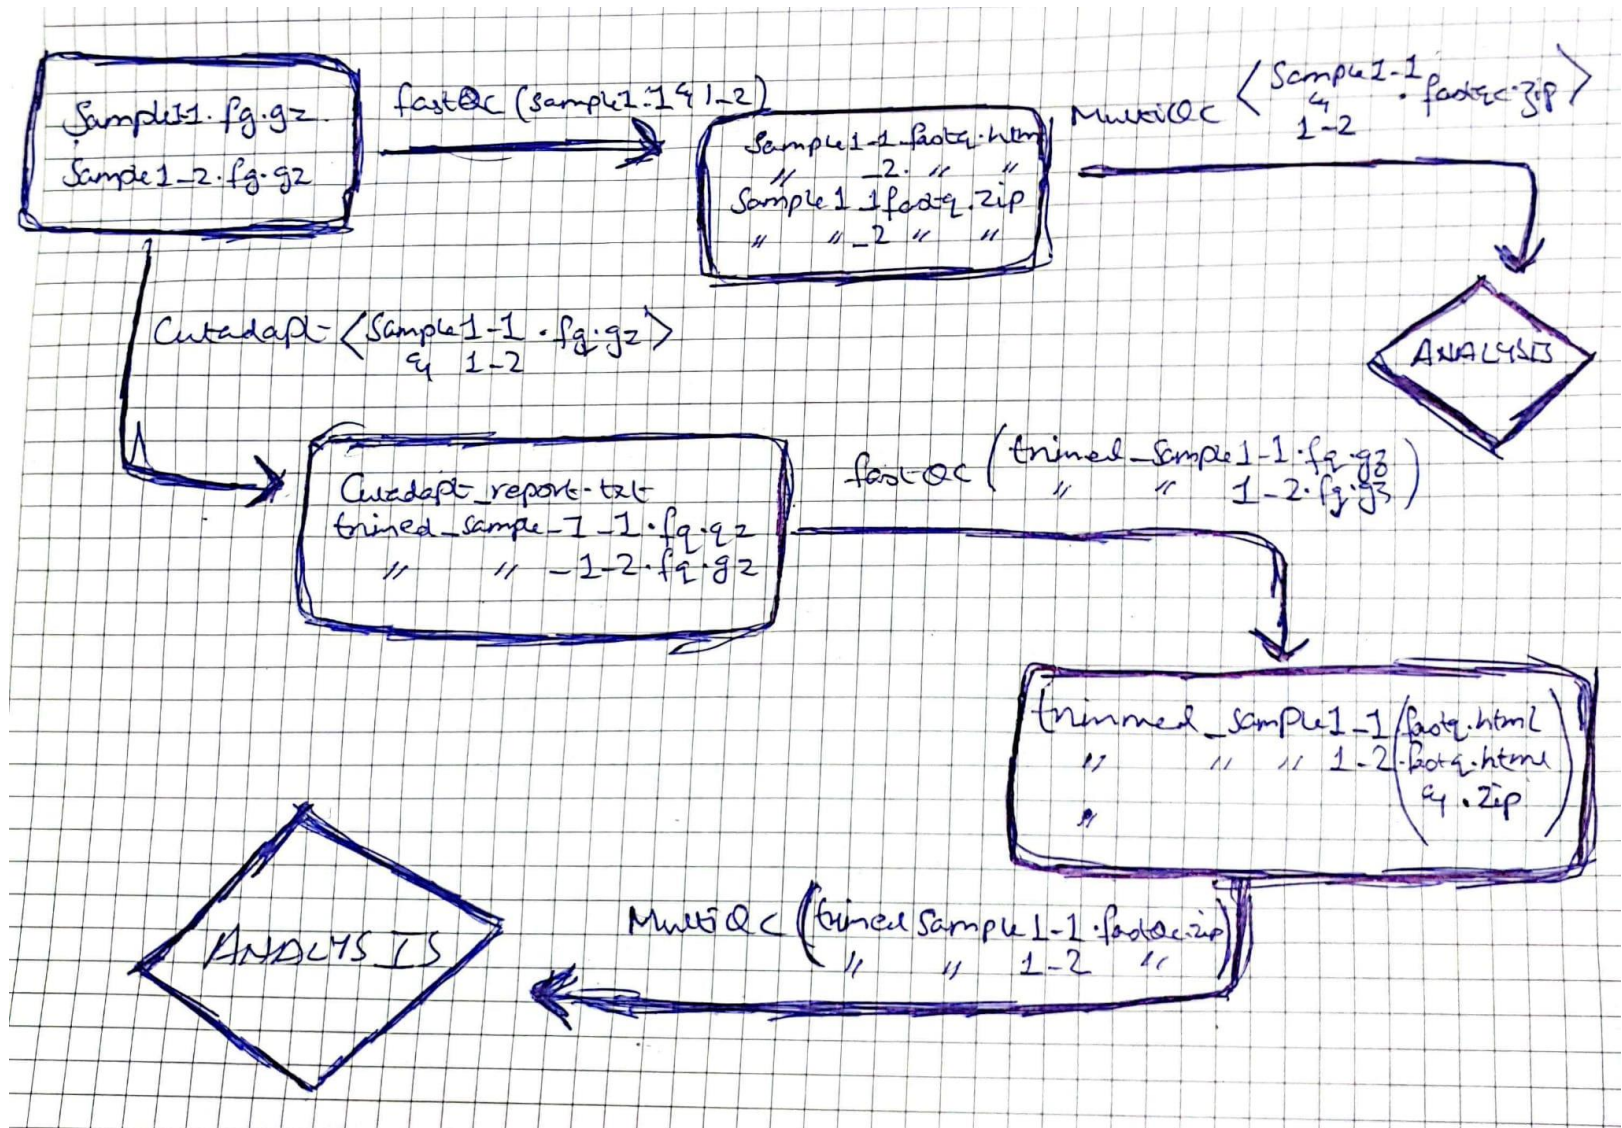 Sample1-1.fq.gz
Sample1_2.fq.gz
fastQC (sample1-1 & 1_2)
Sample1-1.fastq.html
" _2. " "
Sample1_1fastq.zip
" " _2 " "
MultiQC < Sample1-1 & 1-2 . fastqc.zip >
ANALYSIS
Cutadapt < Sample1-1 .fq.gz >
& 1-2
Cutadapt_report.txt
trimed_sample_1_1.fq.gz
" " _1-2.fq.gz
fastQC ( trimed_Sample1-1.fq.gz
" " 1-2.fq.gz )
trimmed_sample1_1 ( fastq.html
" " " 1-2 .fastq.html
& .zip )
"
MultiQC ( trimed Sample1-1.fastQc.zip
" " 1-2 " )
ANALYSIS